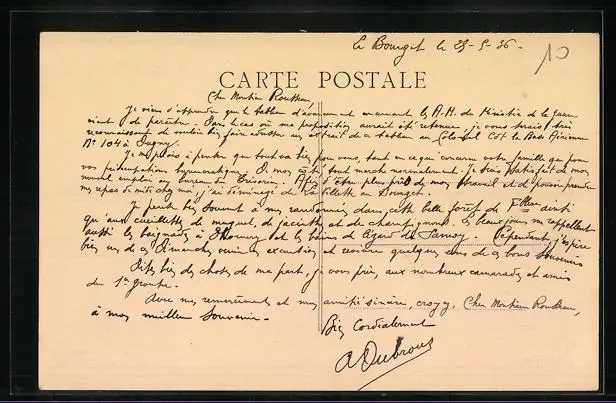 Le Bourget le 25-5-36-
10
CARTE POSTALE
Cher Monsieur Rousseau,
Je viens d'apprendre que le tableau d'avancement concernant les A.M. du Ministère de la Guerre
vient de paraître. Dans le cas où ma proposition aurait été retenue, je vous serais très
reconnaissant de vouloir bien faire adresser un extrait de ce tableau au Colonel Cdt. la Base Aérienne
N° 104 à Dugny.
Je me plais à penser que tout va bien pour vous, tant en ce qui concerne votre famille que pour
vos préoccupations bureaucratiques. De mon côté tout marche normalement. Je suis satisfait de mon
nouvel emploi au bureau de Trésorerie. Afin d'être plus près de mon travail et de pouvoir prendre
mes repas de midi chez moi, j'ai déménagé de la Villette au Bourget.
Je pense bien souvent à nos randonnées dans cette belle forêt de ainsi
qu'aux cueillettes de muguet, de jacinthe et de champignons. Les beaux jours me rappellent
aussi les baignades à Thomery et les bains de Samois. Cependant, j'espère
bien un de ces dimanches venir en excursion et revivre quelques uns de ces bons souvenirs
Dites bien des choses de ma part, je vous prie, aux nombreux camarades et amis
du 1er groupe.
Avec mes remerciements et mon amitié sincère, croyez, Cher Monsieur Rousseau,
à mon meilleur souvenir.-
Bien Cordialement
A Dubrous